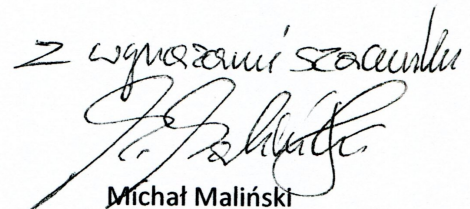 z wyrazami szacunku
Michał Maliński